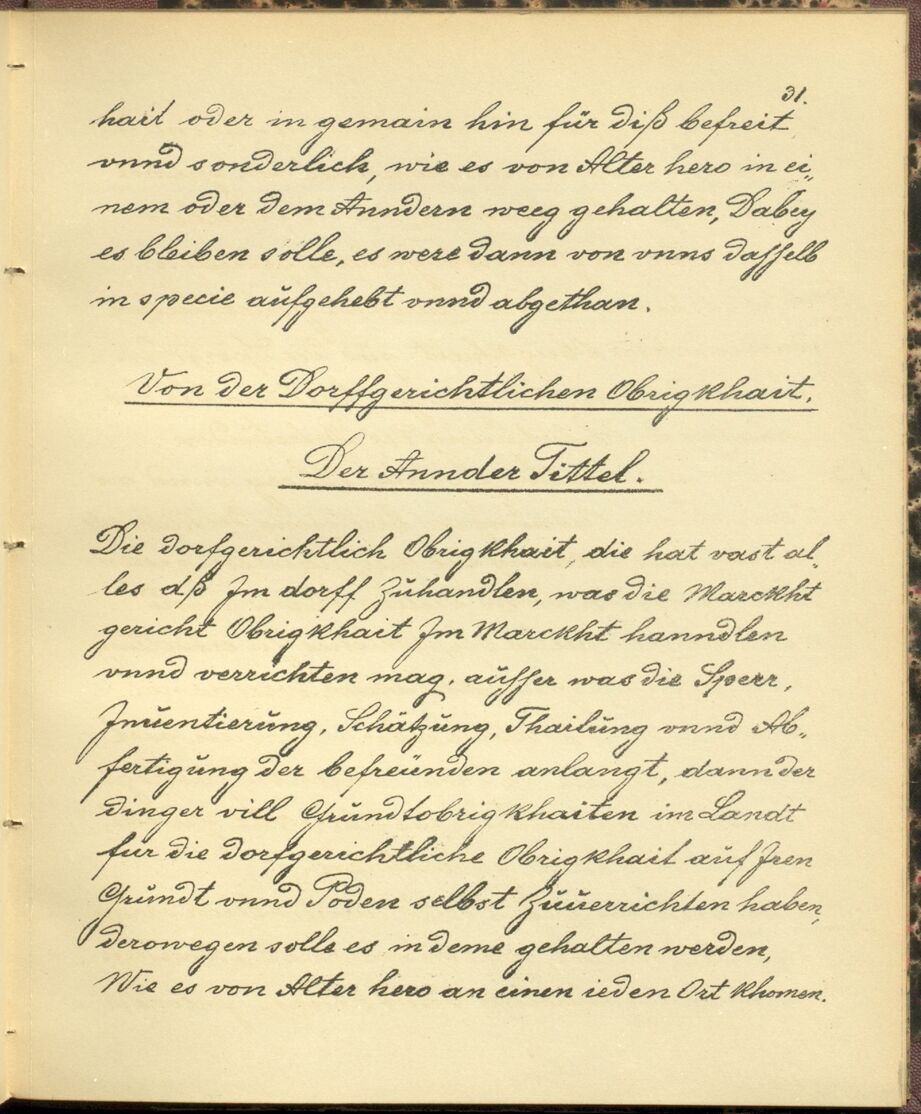 31.
hait oder in gemain hin für diß befreit
vnnd sonderlich, wie es von Alter hero in ei„
nem oder dem Anndern weeg gehalten, Dabey
es bleiben solle, es were dann von vnns dasselb
in specie aufgehebt vnnd abgethan.
Von der Dorffgerichtlichen Obrigkhait.
Der Annder Tittel.
Die dorfgerichtlich Obrigkhait, die hat vast al„
les dß Im dorff Zuhandlen, was die Marckht
gericht Obrigkhait Im Marckht hanndlen
vnnd verrichten mag, ausser was die Sperr,
Inuentierung, Schätzung, Thailung vnnd Ab„
fertigung der befreünden anlangt, dann der
dinger vill Grundtobrigkhaiten im Landt
für die dorfgerichtliche Obrigkhait auf Iren
Grundt vnnd Poden selbst Zuuerrichten haben,
derowegen solle es in deme gehalten werden,
Wie es von Alter hero an einen ieden Ort khomen.